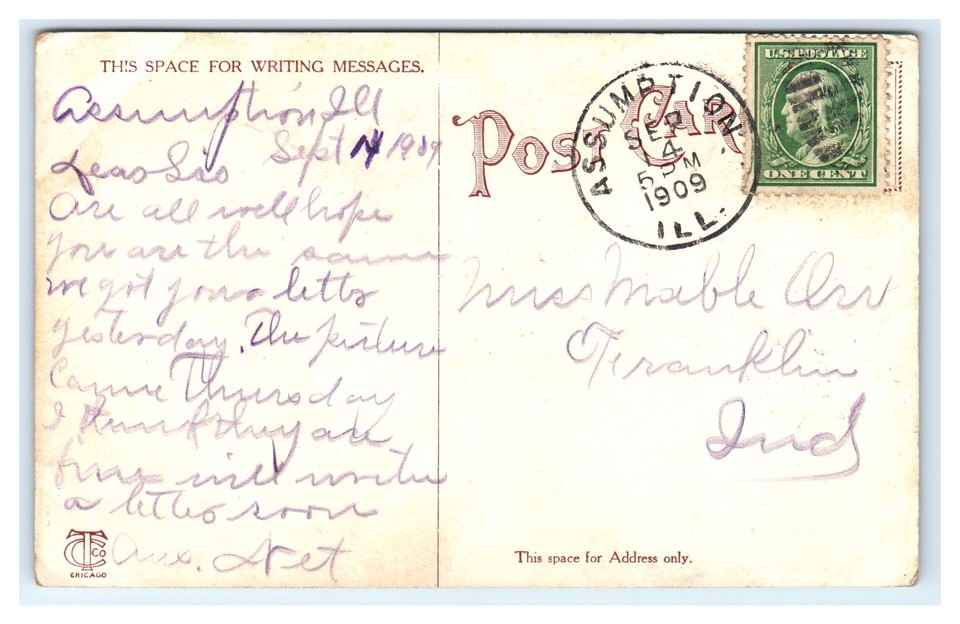 THIS SPACE FOR WRITING MESSAGES.
Assumption Ill
Sept 14 1909
Dear Sis
Are all well hope
you are the same
we got your letter
yesterday. The picture
Came Thursday
I think they are
fine will write
a letter soon
Net
CTCo
CHICAGO
POST CARD
ASSUMPTION
SEP
14
5 PM
1909
ILL.
U.S. POSTAGE
ONE CENT
Miss Mable Orr
Franklin
Ind
This space for Address only.